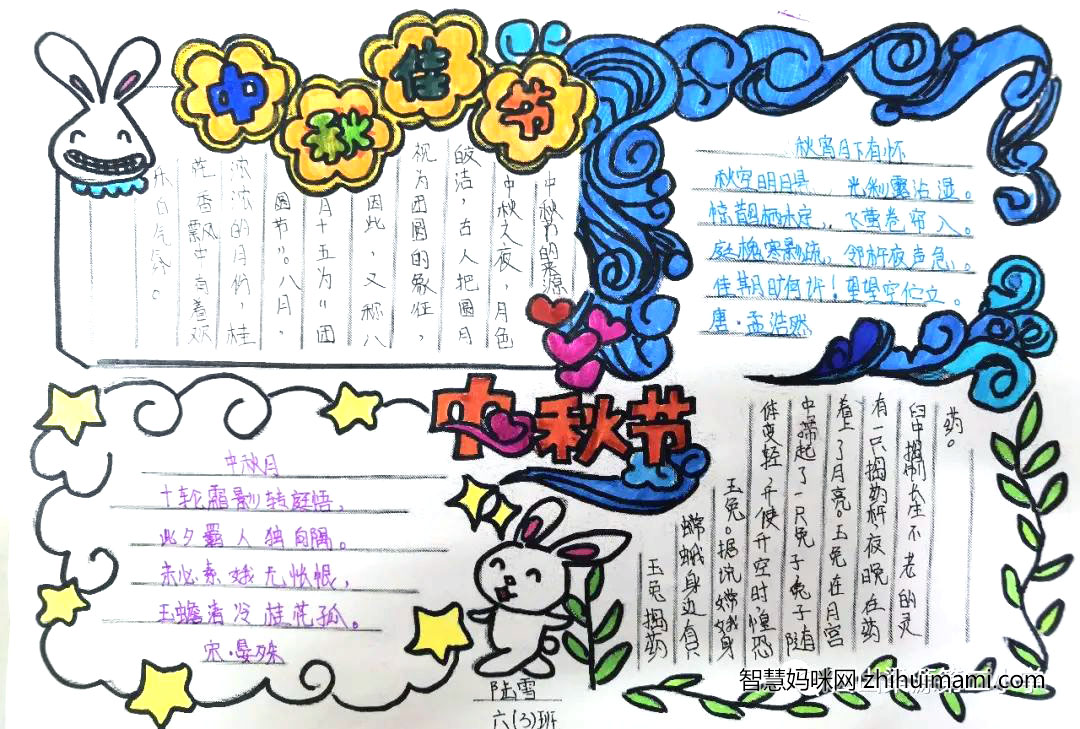 中秋佳节
中秋节的来源
中秋之夜，月色
皎洁，古人把圆月
祝为团圆的象征，
因此，又称八
月十五为“团
圆节”。八月，
浓浓的月份，桂
花香飘中有着欢
乐的气氛。
秋宵月下有怀
秋空明月悬，光彩露沾湿。
惊鹊栖未定，飞萤卷帘入。
庭槐寒影疏，邻杵夜声急。
佳期旷何许！望望空伫立。
唐·孟浩然
中秋节
中秋月
十轮霜影转庭梧，
此夕羁人独向隅。
未必素娥无怅恨，
玉蟾清冷桂花孤。
宋·晏殊
玉兔捣药
嫦娥身边有只
玉兔。据说嫦娥身
体变轻，开使升空时，惶恐
中抱起了一只兔子，兔子随
着上了月亮。玉兔在月宫
有一只捣药杵，夜晚在药
臼中捣制长生不老的灵
药。
陆雪
六(3)班
智慧妈咪网 zhihuimami.com